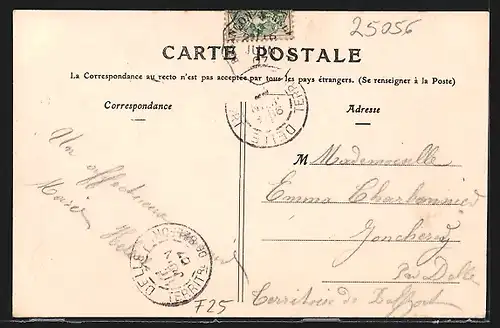 25056
CARTE POSTALE
La Correspondance au recto n'est pas acceptée par tous les pays étrangers. (Se renseigner à la Poste)
Correspondance
Adresse
Un affectueux
M Mademoiselle
Emma Charbonnier
Joncherey
Par Delle
Territoire de Belfort
DELLE
DELLE
F25